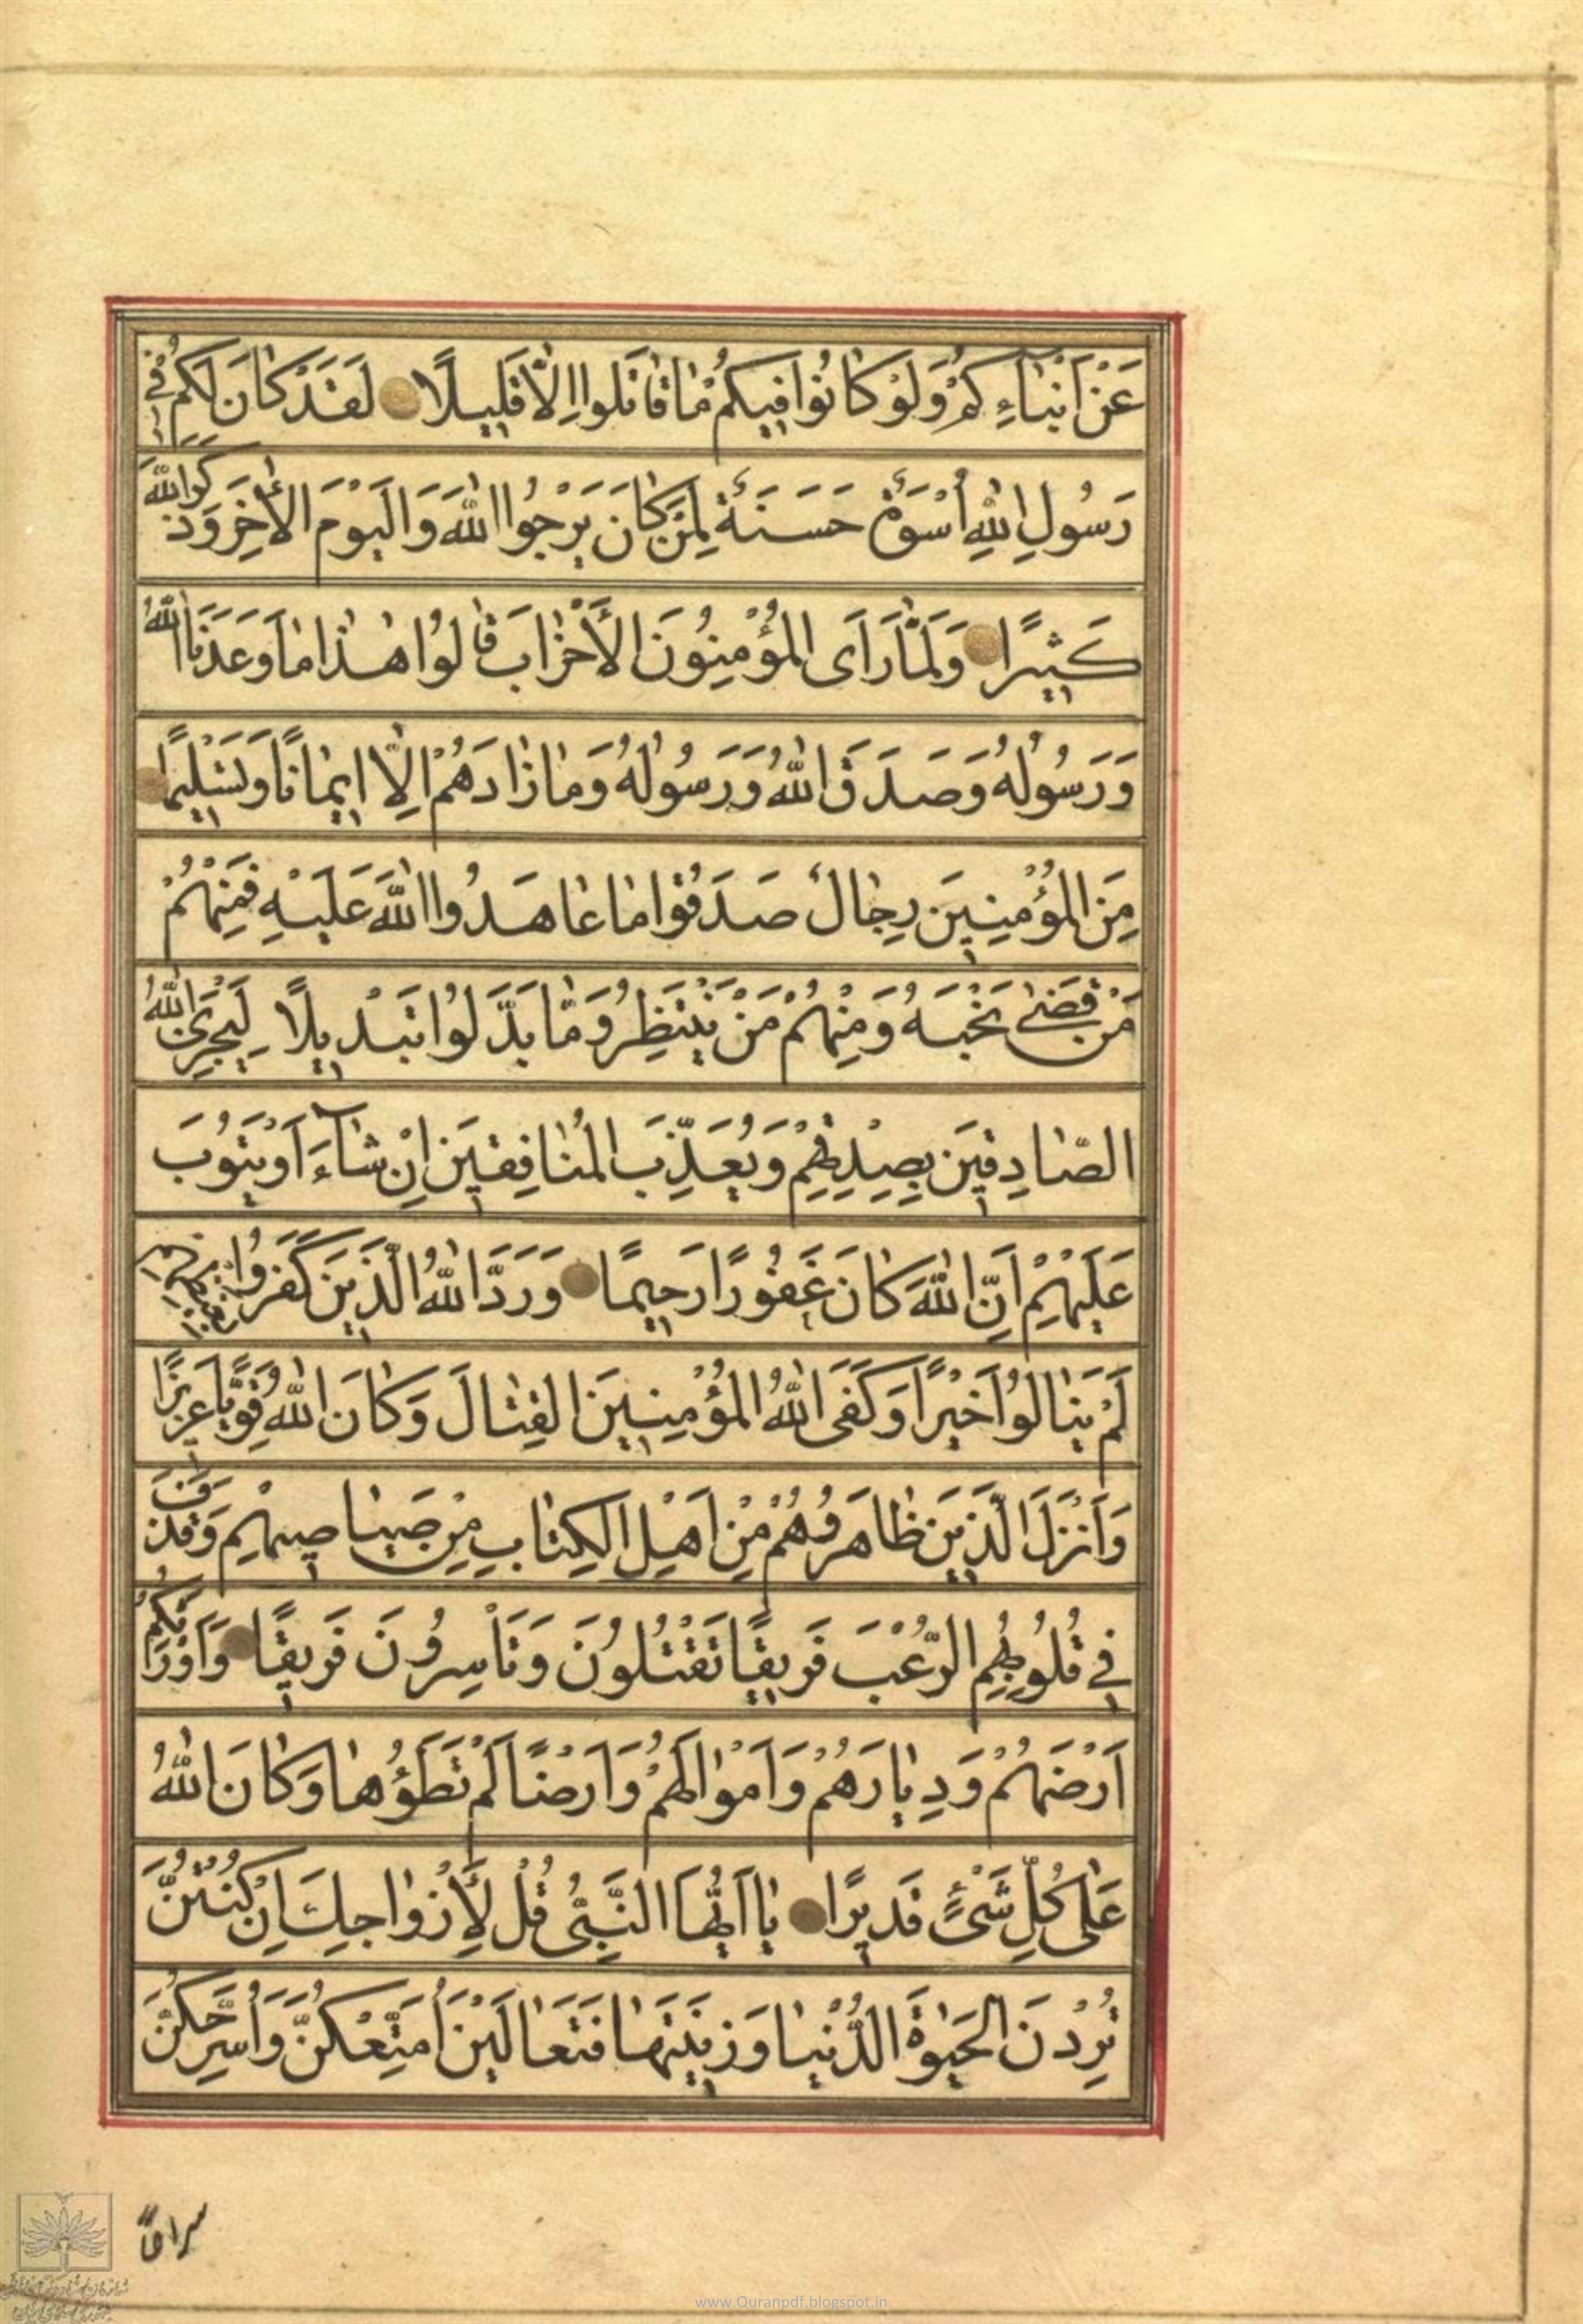 عَنْ اَنْبٰاۤءِكُمْ وَلَوْ كٰانُوا فِيكُمْ مٰا قٰاتَلُوا اِلّٰا قَلِيلًا لَقَدْ كٰانَ لَكُمْ فِي
رَسُولِ اللّٰهِ اُسْوَةٌ حَسَنَةٌ لِمَنْ كٰانَ يَرْجُوا اللّٰهَ وَالْيَوْمَ الْاٰخِرَ وَذَكَرَ اللّٰهَ
كَثِيرًا وَلَمّٰا رَاَى الْمُؤْمِنُونَ الْأَحْزٰابَ قٰالُوا هٰذٰا مٰا وَعَدَنَا اللّٰهُ
وَرَسُولُهُ وَصَدَقَ اللّٰهُ وَرَسُولُهُ وَمٰا زٰادَهُمْ اِلّٰا اِيمٰانًا وَتَسْلِيمًا
مِنَ الْمُؤْمِنِينَ رِجٰالٌ صَدَقُوا مٰا عٰاهَدُوا اللّٰهَ عَلَيْهِ فَمِنْهُمْ
مَنْ قَضٰى نَحْبَهُ وَمِنْهُمْ مَنْ يَنْتَظِرُ وَمٰا بَدَّلُوا تَبْدِيلًا لِيَجْزِيَ اللّٰهُ
الصّٰادِقِينَ بِصِدْقِهِمْ وَيُعَذِّبَ الْمُنٰافِقِينَ اِنْ شٰاۤءَ اَوْ يَتُوبَ
عَلَيْهِمْ اِنَّ اللّٰهَ كٰانَ غَفُورًا رَحِيمًا وَرَدَّ اللّٰهُ الَّذِينَ كَفَرُوا بِغَيْظِهِمْ
لَمْ يَنٰالُوا خَيْرًا وَكَفَى اللّٰهُ الْمُؤْمِنِينَ الْقِتٰالَ وَكٰانَ اللّٰهُ قَوِيًّا عَزِيزًا
وَاَنْزَلَ الَّذِينَ ظٰاهَرُوهُمْ مِنْ اَهْلِ الْكِتٰابِ مِنْ صَيٰاصِيهِمْ وَقَذَفَ
فِي قُلُوبِهِمُ الرُّعْبَ فَرِيقًا تَقْتُلُونَ وَتَأْسِرُونَ فَرِيقًا وَاَوْرَثَكُمْ
اَرْضَهُمْ وَدِيٰارَهُمْ وَاَمْوٰالَهُمْ وَاَرْضًا لَمْ تَطَؤُهٰا وَكٰانَ اللّٰهُ
عَلٰى كُلِّ شَيْءٍ قَدِيرًا يٰا اَيُّهَا النَّبِيُّ قُلْ لِأَزْوٰاجِكَ اِنْ كُنْتُنَّ
تُرِدْنَ الْحَيٰوةَ الدُّنْيٰا وَزِينَتَهٰا فَتَعٰالَيْنَ اُمَتِّعْكُنَّ وَاُسَرِّحْكُنَّ
سراحًا
www.Quranpdf.blogspot.in